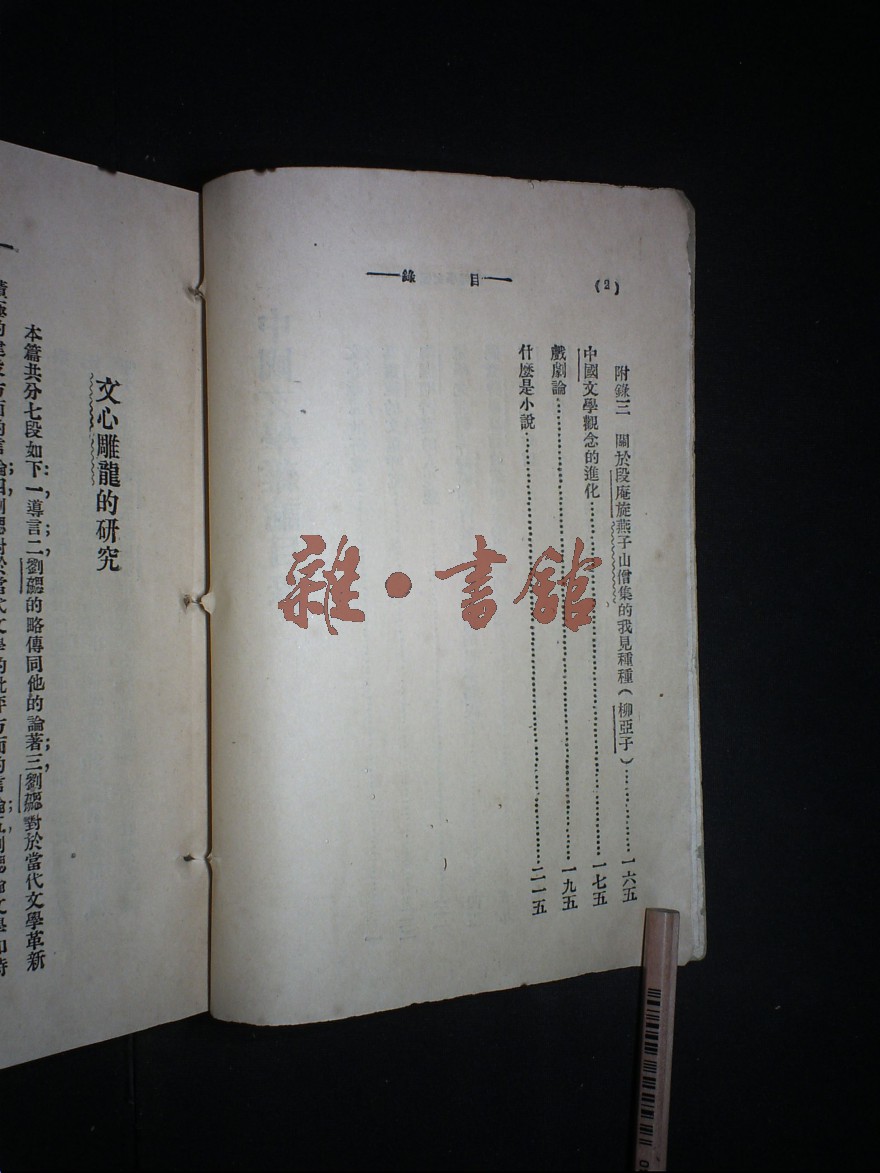 (2)
——錄 目——
附錄三 關於段庵旋燕子山僧集的我見種種(柳亞子)……一六五
中國文學觀念的進化……一七五
戲劇論……一九五
什麼是小說……二一五
雜·書館
文心雕龍的研究
本篇共分七段如下:一,導言;二,劉勰的略傳同他的論著;三,劉勰對於當代文學革新